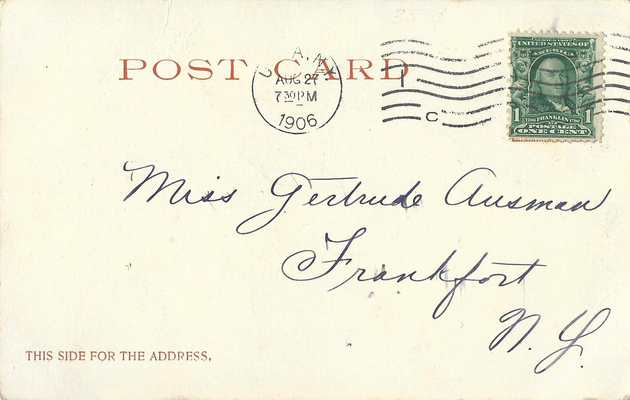 POST CARD
AUG 27
7 30 P M
1906
C
SERIES 1902
UNITED STATES OF
AMERICA
1 1706 FRANKLIN 1790 1
POSTAGE
ONE CENT
Miss Gertrude Ausman
Frankfort
N. Y.
THIS SIDE FOR THE ADDRESS,